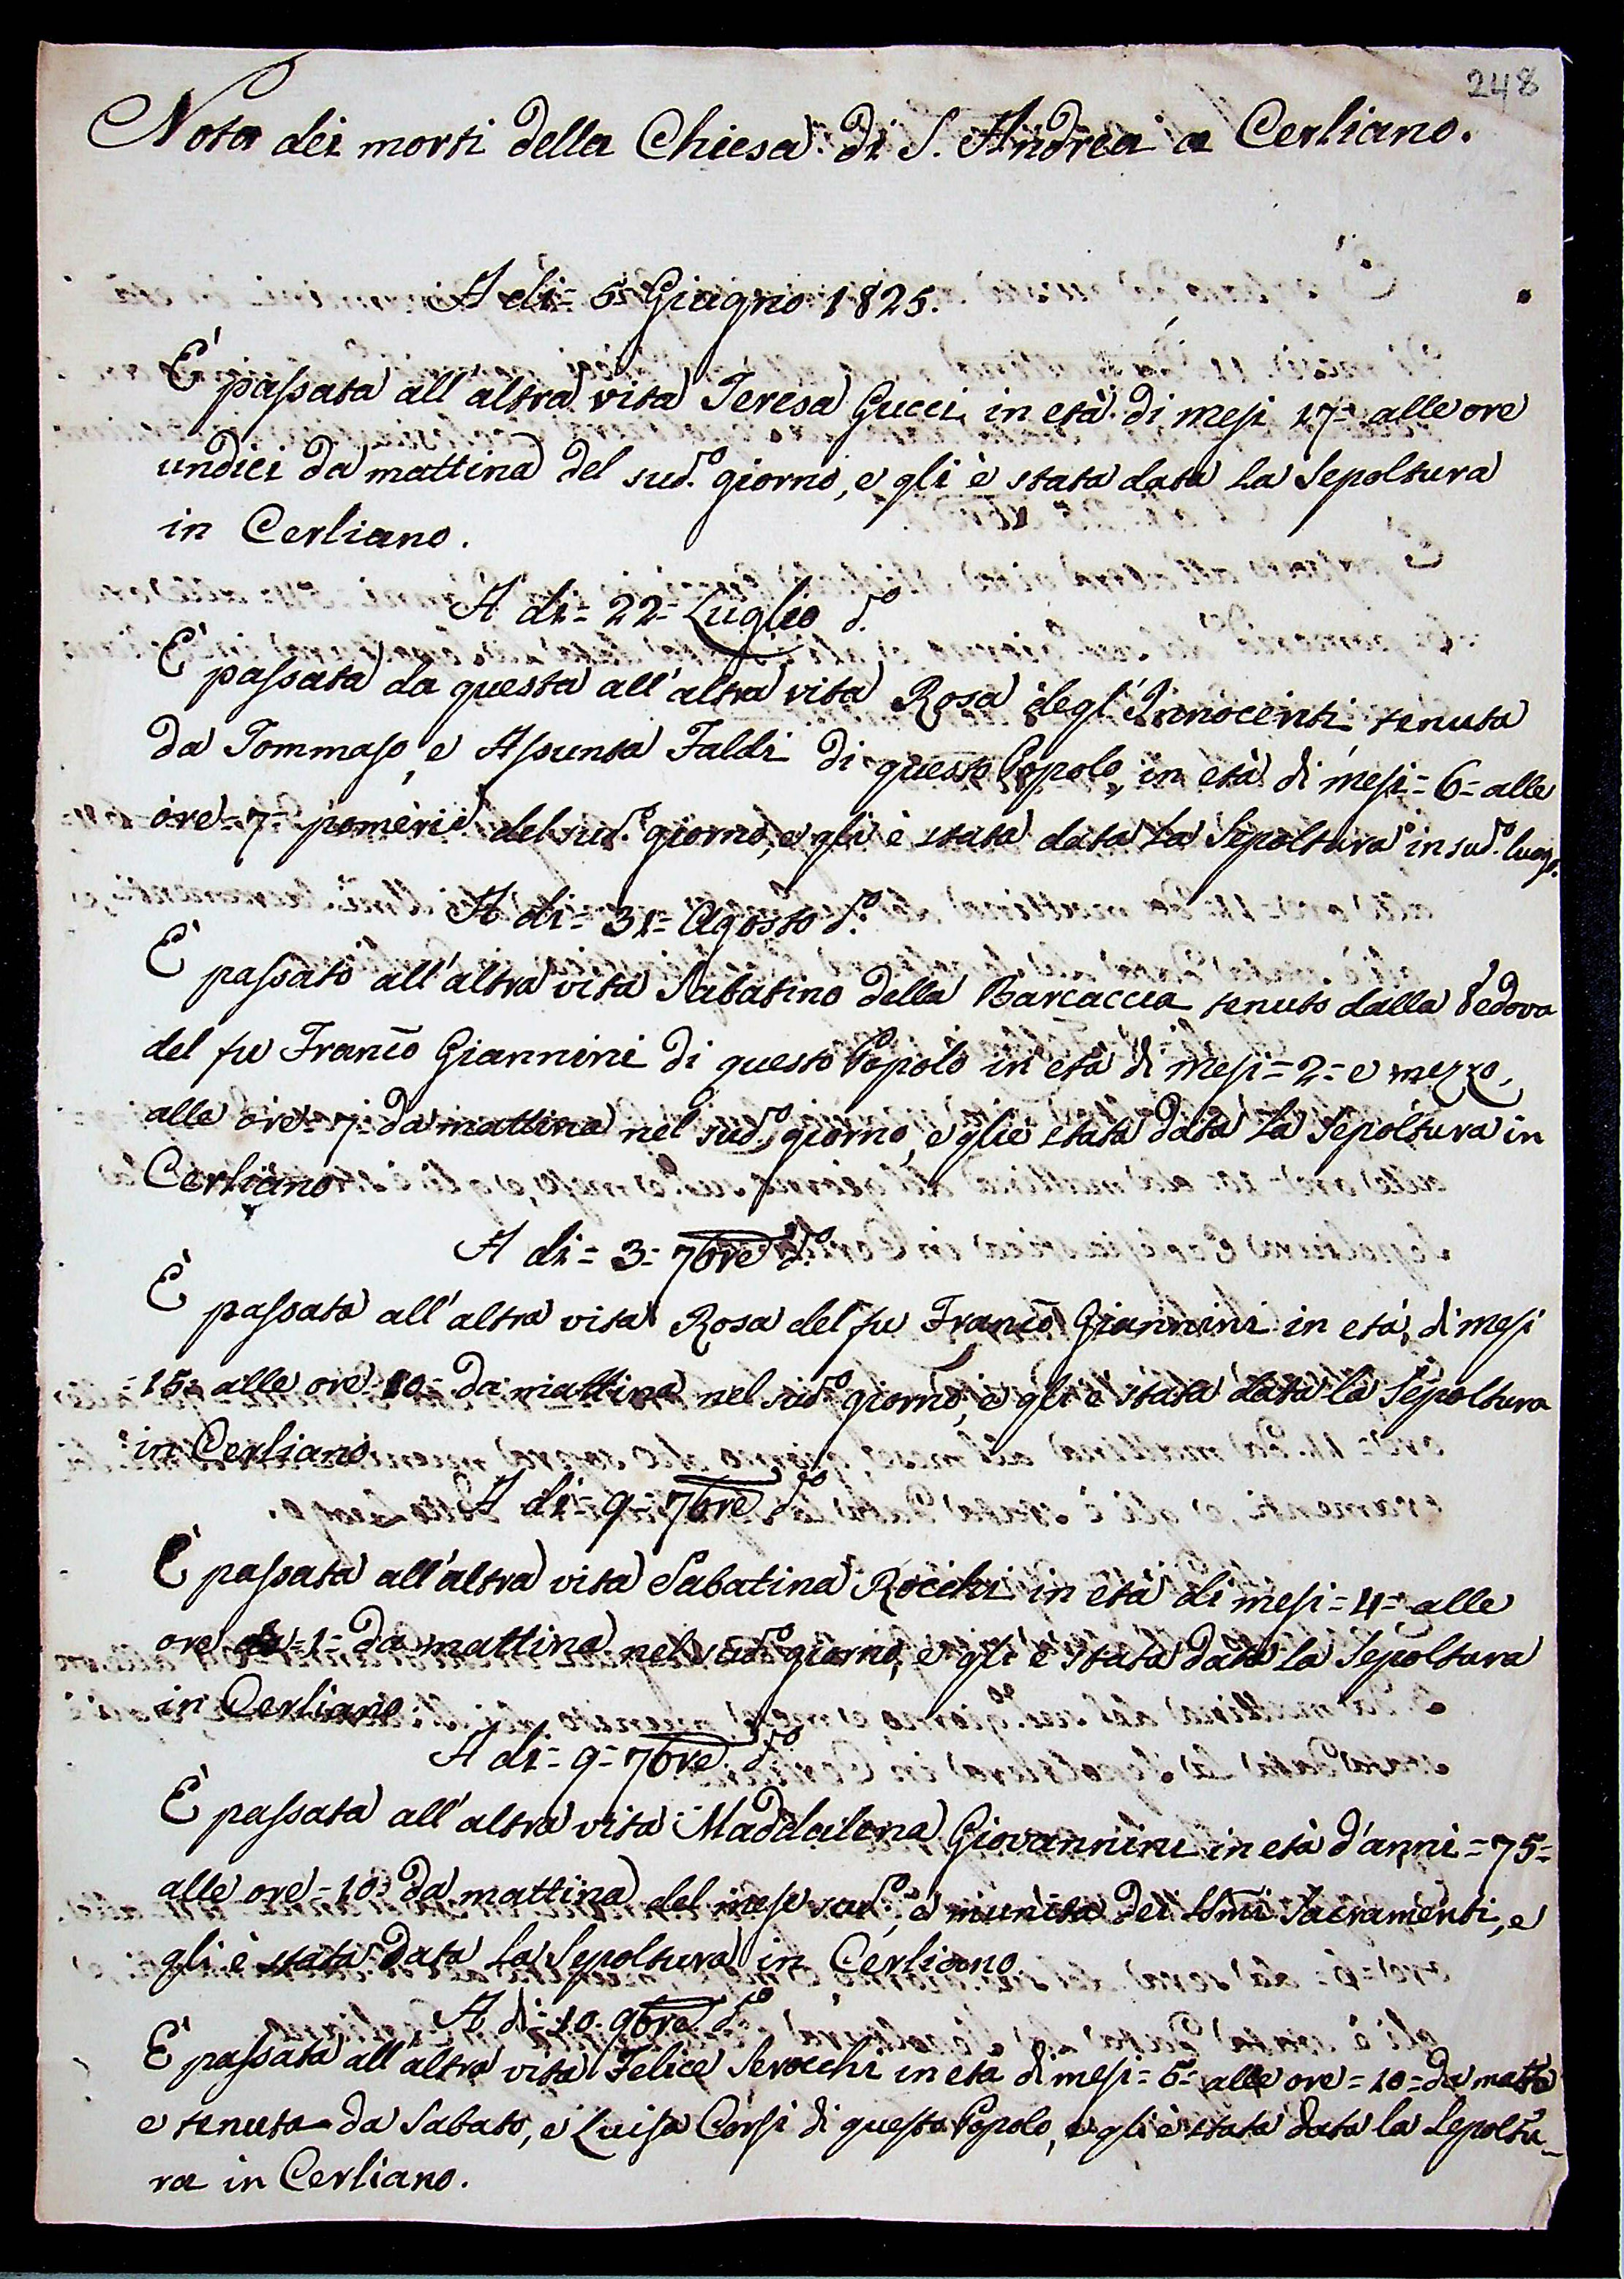 248
Nota dei morti della Chiesa di S. Andrea a Cerliano.
A di = 5 = Giugno 1825.
E' passata all'altra vita Teresa Gucci in età di mesi 17 = alle ore
undici da mattina del sud.º giorno, e gli è stata data la Sepoltura
in Cerliano.
A di = 22 = Luglio d.º
E' passata da questa all'altra vita Rosa degl'Innocenti tenuta
da Tommaso, e Assunta Faldi di questo Popolo, in età di mesi = 6 = alle
ore = 7 = pomerid. del sud.º giorno, e gli è stata data la Sepoltura in sud.º luogo.
A di = 31 = Agosto d.º
E' passato all'altra vita Sabatino della Barcaccia tenuto dalla Vedova
del fu Franc̄o Giannini di questo Popolo in età di mesi = 2 = e mezzo,
alle ore = 7 = da mattina nel sud.º giorno, e glie stata data la Sepoltura in
Cerliano
A di = 3 = 7bre d.º
E' passata all'altra vita Rosa del fu Franc̄o Giannini in età, di mesi
= 15 = alle ore 10 = da mattina nel sud.º giorno, e gli è stata data la Sepoltura
in Cerliano
A di = 9 = 7bre d.º
E' passata all'altra vita Sabatina Rocchi in età di mesi = 4 = alle
ore = 1 = da mattina nel sud.º giorno, e gli è stata data la Sepoltura
in Cerliano.
A di = 9 = 7bre d.º
E' passata all'altra vita Maddalena Giovannini in età d'anni = 75 =
alle ore = 10 = da mattina del mese sud.º, e munita dei SSmi Sacramenti, e
gli è stata data la Sepoltura in Cerliano
A di = 10. 9bre d.º
E' passata all'altra vita Felice Serocchi in eta di mesi = 5 = alle ore = 10 = da matt.a
e tenuta da Sabato, e Luisa Corsi di questo Popolo, e gli è stata data la Sepoltu-
ra in Cerliano.